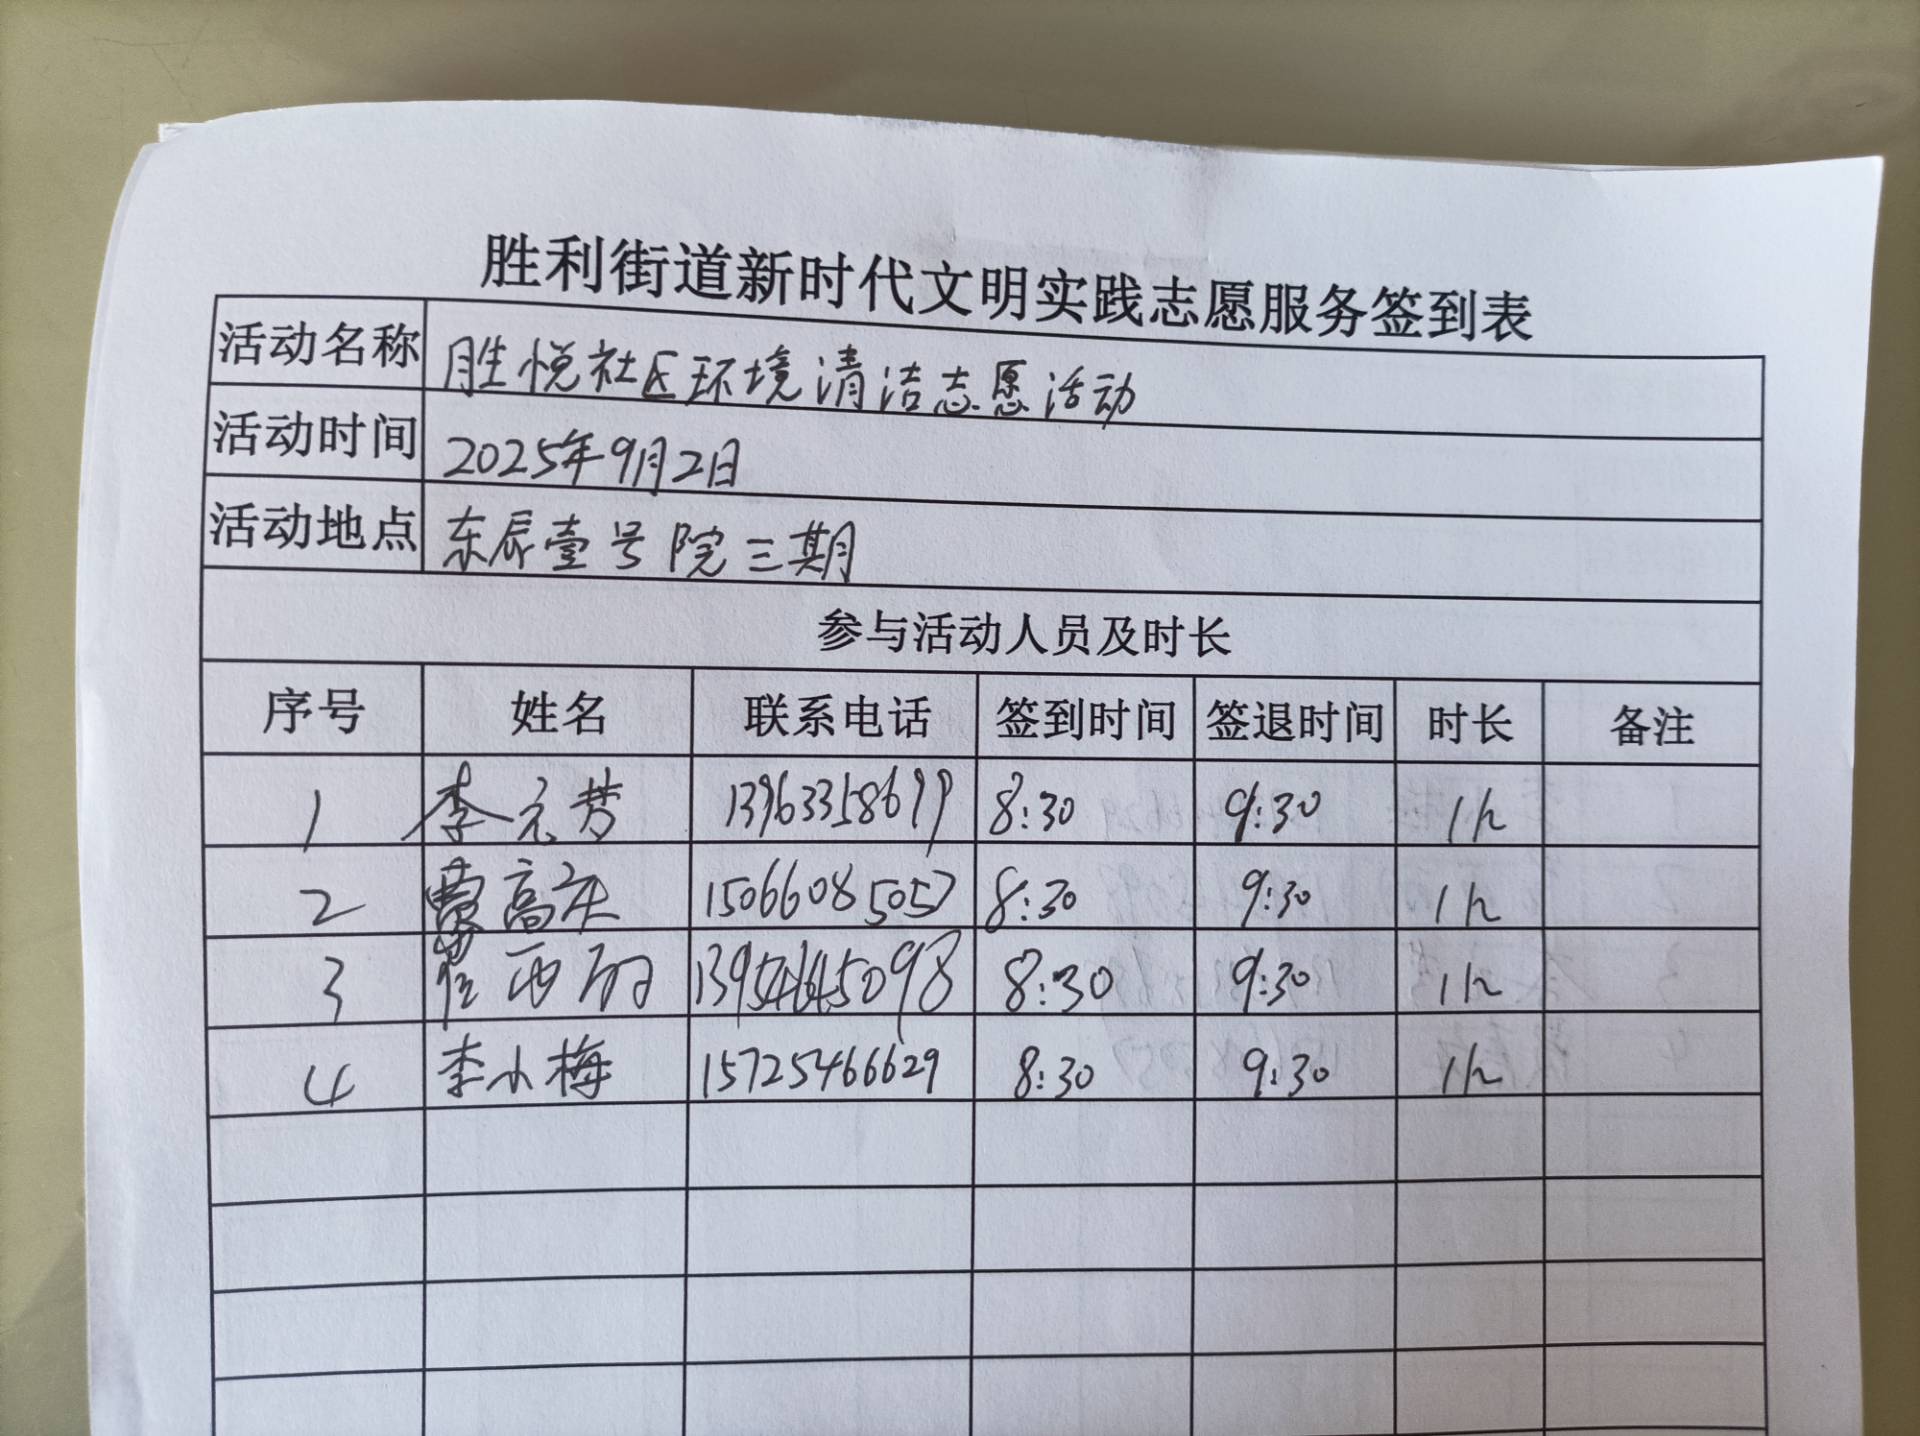 胜利街道新时代文明实践志愿服务签到表
活动名称 胜悦社区环境清洁志愿活动
活动时间 2025年9月2日
活动地点 东辰壹号院三期
参与活动人员及时长
序号 姓名 联系电话 签到时间 签退时间 时长 备注
1 李元芳 13963358699 8:30 9:30 1h
2 高 15066085057 8:30 9:30 1h
3 西 13954645098 8:30 9:30 1h
4 李小梅 15725466629 8:30 9:30 1h